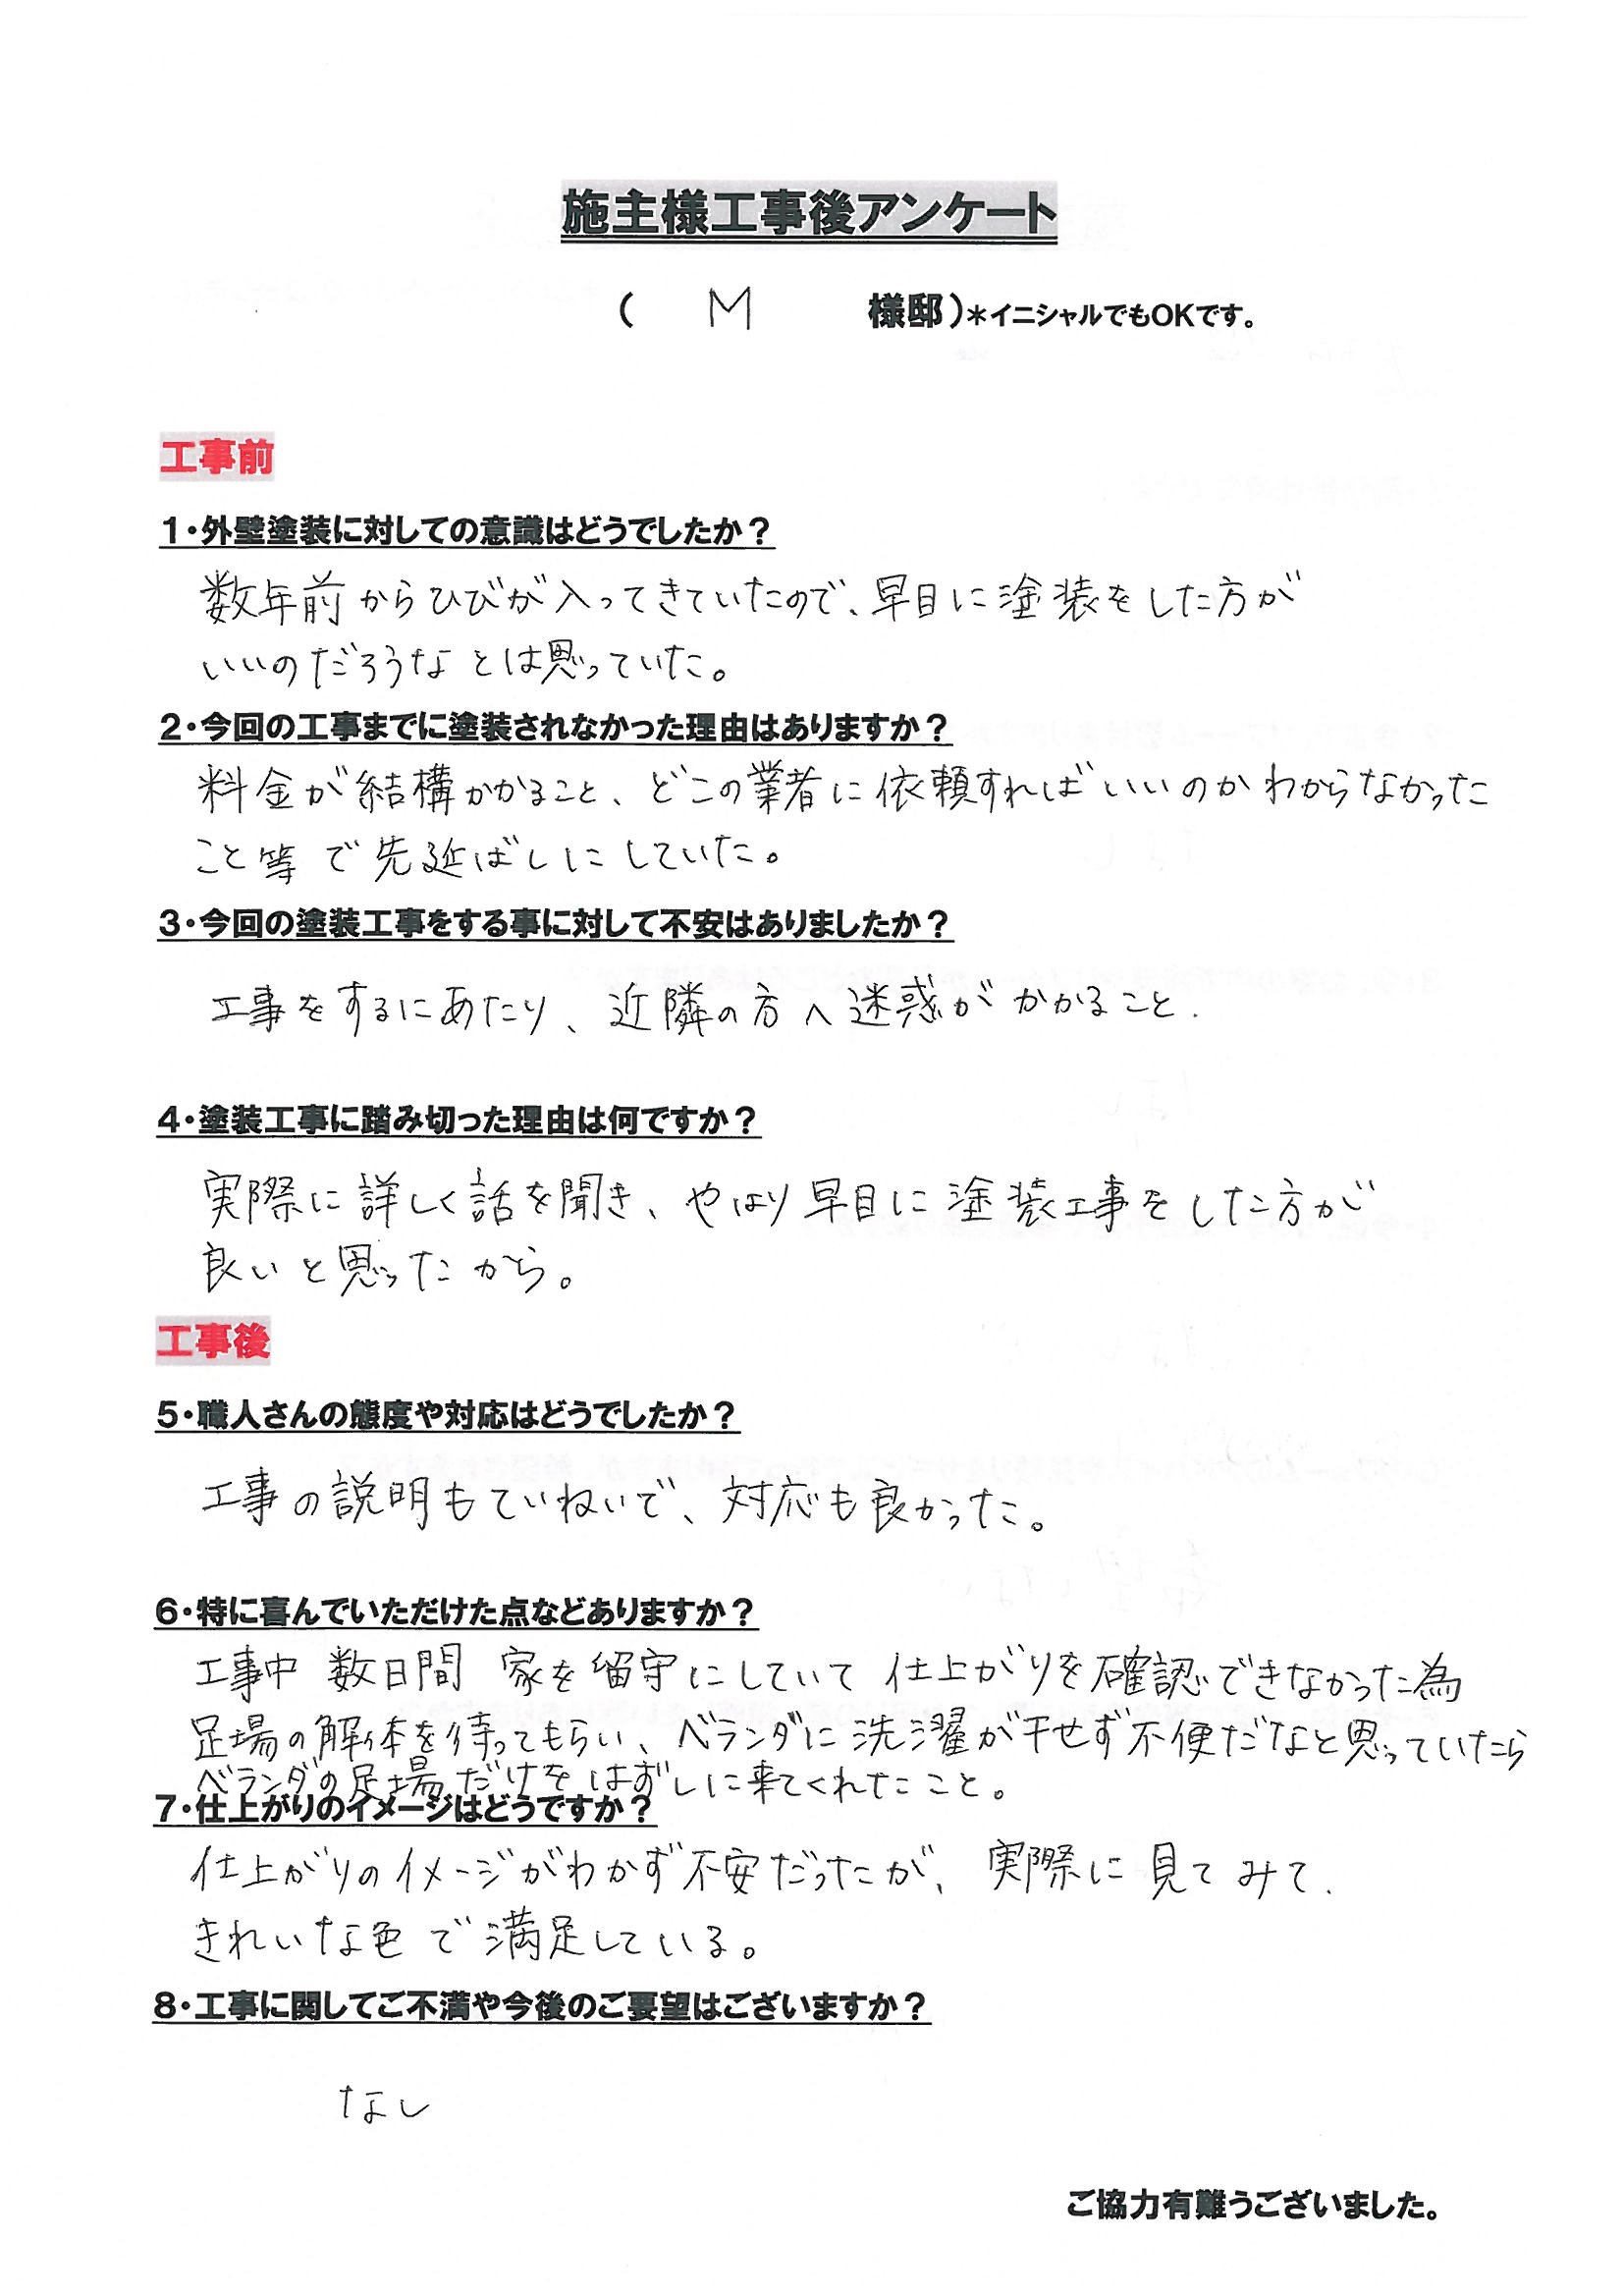 施主様工事後アンケート
( M 様邸)*イニシャルでもOKです。
工事前
1・外壁塗装に対しての意識はどうでしたか?
数年前からひびが入ってきていたので、早目に塗装をした方が
いいのだろうなとは思っていた。
2・今回の工事までに塗装されなかった理由はありますか?
料金が結構かかること、どこの業者に依頼すればいいのかわからなかった
こと等で先延ばしにしていた。
3・今回の塗装工事をする事に対して不安はありましたか?
工事をするにあたり、近隣の方へ迷惑がかかること.
4・塗装工事に踏み切った理由は何ですか?
実際に詳しく話を聞き、やはり早目に塗装工事をした方が
良いと思ったから。
工事後
5・職人さんの態度や対応はどうでしたか?
工事の説明もていねいで、対応も良かった。
6・特に喜んでいただけた点などありますか?
工事中 数日間 家を留守にしていて 仕上がりを確認できなかった為
足場の解体を待ってもらい、ベランダに洗濯が干せず不便だなと思っていたら
ベランダの足場だけをはずしに来てくれたこと。
7・仕上がりのイメージはどうですか?
仕上がりのイメージがわかず不安だったが、実際に見てみて.
きれいな色で満足している。
8・工事に関してご不満や今後のご要望はございますか?
なし
ご協力有難うございました。